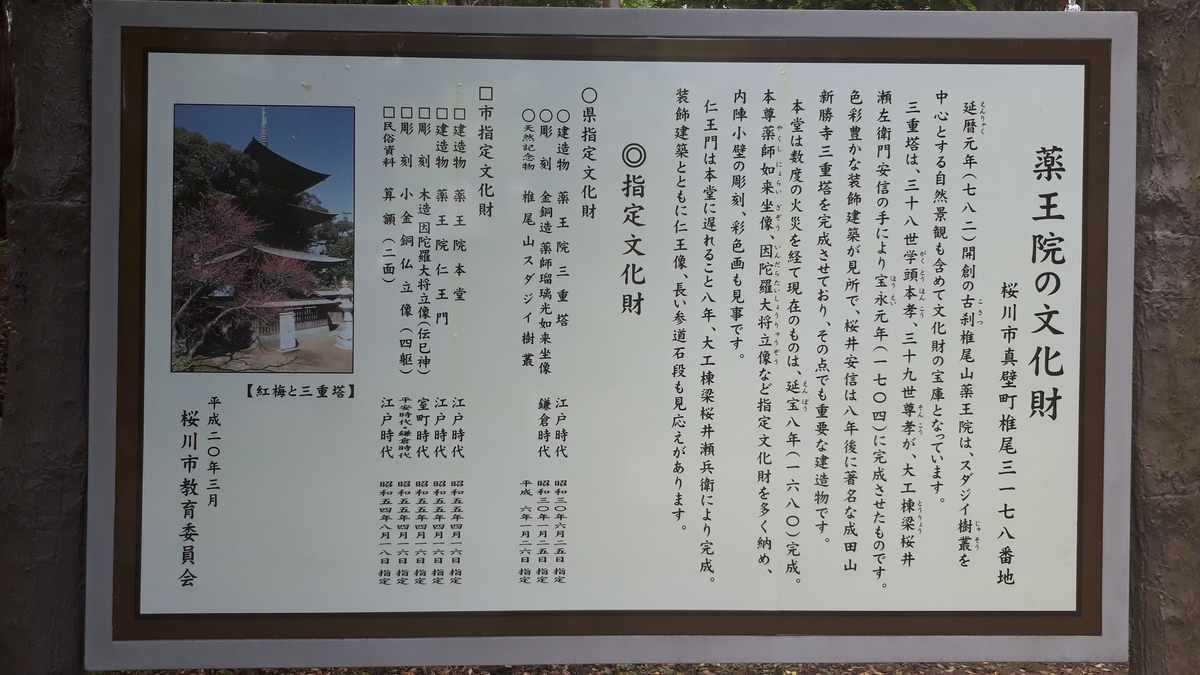 薬王院の文化財
桜川市真壁町椎尾三一七八番地
延暦元年(七八二)開創の古刹椎尾山薬王院は、スダジイ樹叢を
中心とする自然景観も含めて文化財の宝庫となっています。
三重塔は、三十八世学頭本孝、三十九世尊孝が、大工棟梁桜井
瀬左衛門安信の手により宝永元年(一七〇四)に完成させたものです。
色彩豊かな装飾建築が見所で、桜井安信は八年後に著名な成田山
新勝寺三重塔を完成させており、その点でも重要な建造物です。
本堂は数度の火災を経て現在のものは、延宝八年(一六八〇)完成。
本尊薬師如来坐像、因陀羅大将立像など指定文化財を多く納め、
内陣小壁の彫刻、彩色画も見事です。
仁王門は本堂に遅れること八年、大工棟梁桜井瀬兵衛により完成。
装飾建築とともに仁王像、長い参道石段も見応えがあります。
◎指定文化財
○県指定文化財
○建造物 薬王院三重塔 江戸時代 昭和三〇年六月二五日 指定
○彫刻 金銅造 薬師瑠璃光如来坐像 鎌倉時代 昭和三〇年一月二五日 指定
○天然記念物 椎尾山スダジイ樹叢 平成 六年一月二六日 指定
□市指定文化財
□建造物 薬王院本堂 江戸時代 昭和五五年四月一六日 指定
□建造物 薬王院仁王門 江戸時代 昭和五五年四月一六日 指定
□彫刻 木造 因陀羅大将立像(伝巳神) 室町時代 昭和五五年四月一六日 指定
□彫刻 小金銅仏立像(四躯) 平安時代・鎌倉時代 昭和五五年四月一六日 指定
□民俗資料 算額(二面) 江戸時代 昭和五四年八月一八日 指定
【紅梅と三重塔】
平成二〇年三月
桜川市教育委員会